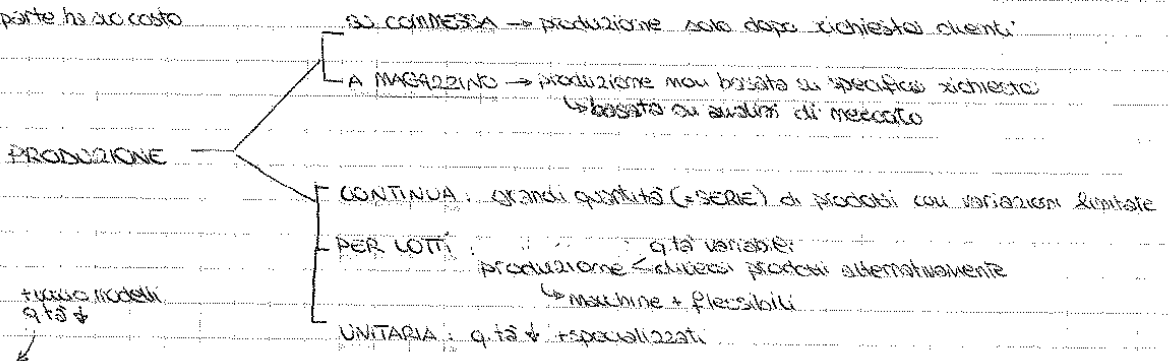 parte ha suo costo
SU COMMESSA → produzione solo dopo richiesta clienti
A MAGAZZINO → produzione non basata su specifica richiesta
↳ basata su analisi di mercato
PRODUZIONE
CONTINUA : grandi quantità (= SERIE) di prodotti con variazioni limitate
PER LOTTI : q.tà variabili
produzione < diversi prodotti alternativamente
↳ macchine + flessibili
modelli
q.tà ↓
UNITARIA : q.tà ↓ + specializzati